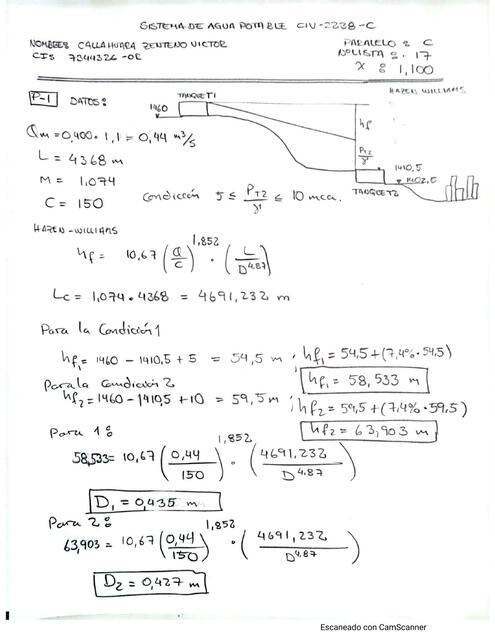 SISTEMA DE AGUA POTABLE CIV-2238-C
NOMBRE: CALLAHUARA ZENTENO VICTOR
PARALELO: C
CI: 7344326-OR
Nº LISTA: 17
X : 1,100
P-1 DATOS:
TANQUE T1
HAZEN WILLIAMS
1460
hf
Qm = 0,400 · 1,1 = 0,44 m³/s
L = 4368 m
PT2/γ
1410,5
M = 1,074
1402,5
TANQUE T2
C = 150
Condición 5 ≤ PT2/γ ≤ 10 mca.
HAZEN-WILLIAMS
hf = 10,67 (Q/C)^1,852 · (L/D^4.87)
Lc = 1,074 · 4368 = 4691,232 m
Para la Condición 1
hf1 = 1460 - 1410,5 + 5 = 54,5 m ; hf1 = 54,5 + (7,4% · 54,5)
hf1 = 58,533 m
Para la Condición 2
hf2 = 1460 - 1410,5 + 10 = 59,5 m ; hf2 = 59,5 + (7,4% · 59,5)
hf2 = 63,903 m
Para 1:
58,533 = 10,67 (0,44/150)^1,852 · (4691,232/D^4.87)
D1 = 0,435 m
Para 2:
63,903 = 10,67 (0,44/150)^1,852 · (4691,232/D^4,87)
D2 = 0,427 m
Escaneado con CamScanner